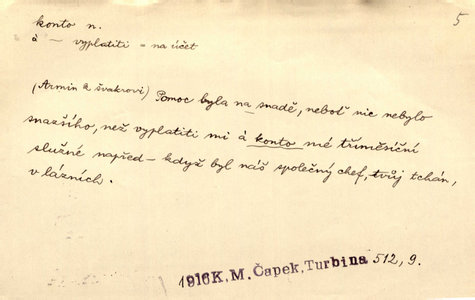 5
konto n.
à — vyplatiti = na účet
(Armin k švakrovi) Pomoc byla na snadě, neboť nic nebylo
snazšího, než vyplatiti mi à konto mé tříměsíční
služné napřed – když byl náš společný chef, tvůj tchán,
v lázních.
1916K, M. Čapek, Turbina 512, 9.